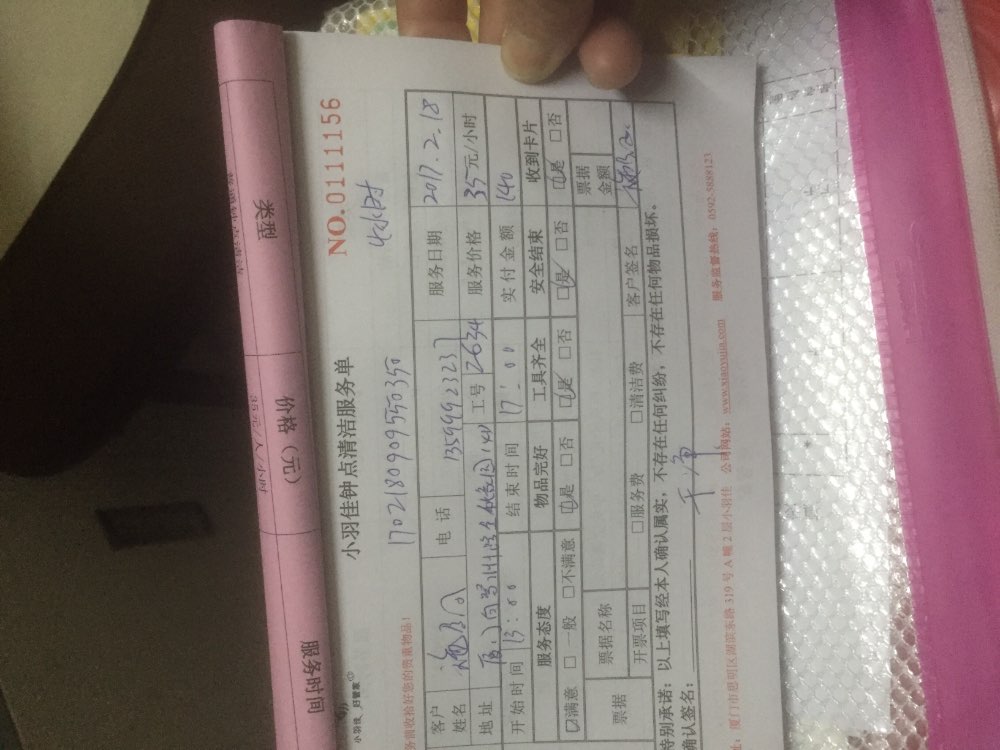 类型
价格（元）
服务时间
35元/人/小时
小羽佳 好管家
小羽佳钟点清洁服务单
NO.0111156
务前收拾好您的贵重物品！
17021809095 50350
4小时
客户姓名 电话 13599923237 服务日期 2017.2.18
地址 工号 2634 服务价格 35元/小时
开始时间 13:00 结束时间 17:00 实付金额 140
服务态度 物品完好 工具齐全 安全结束 收到卡片
☑满意 □一般 □不满意 ☑是 □否 ☑是 □否 ☑是 □否 ☑是 □否
票据 票据名称 票据金额
开票项目 □服务费 □清洁费 客户签名
特别承诺：以上填写经本人确认属实，不存在任何纠纷，不存在任何物品损坏。
确认签名：
址：厦门市思明区湖滨东路319号A幢2层小羽佳 公司网站：www.xiaoyujia.com 服务监督热线：0592-5888123